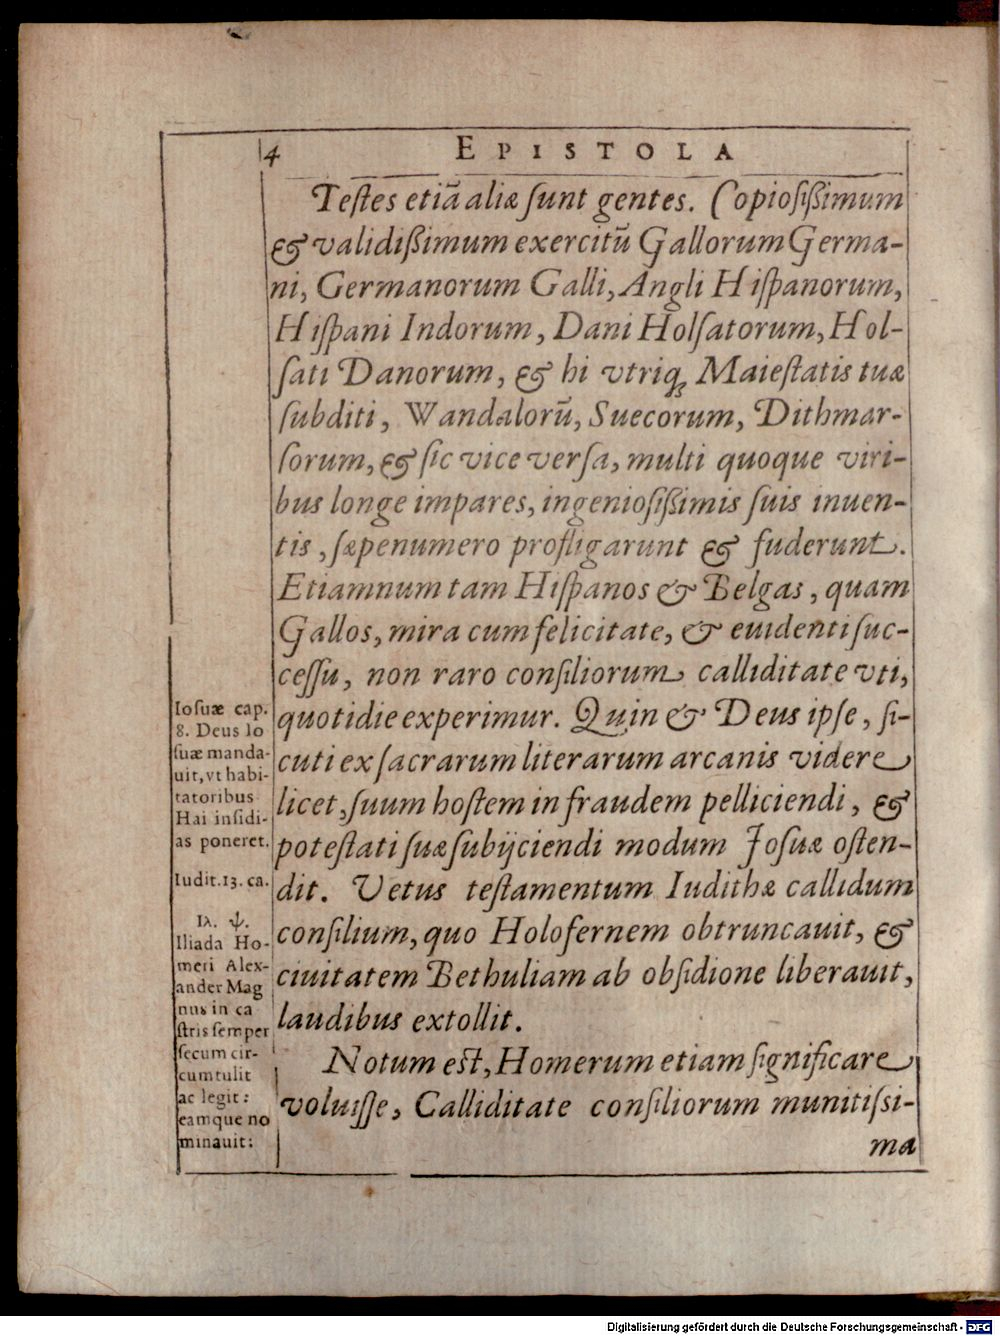 4 EPISTOLA
Teſtes etiā aliæ ſunt gentes. Copioſißimum
& validißimum exercitū Gallorum Germa-
ni, Germanorum Galli, Angli Hiſpanorum,
Hiſpani Indorum, Dani Holſatorum, Hol-
ſati Danorum, & hi vtriq; Maieſtatis tuæ
ſubditi, Wandalorū, Suecorum, Dithmar-
ſorum, & ſic vice verſa, multi quoque viri-
bus longe impares, ingenioſißimis ſuis inuen-
tis, ſæpenumero profligarunt & fuderunt.
Etiamnum tam Hiſpanos & Belgas, quam
Gallos, mira cum felicitate, & euidenti ſuc-
ceſſu, non raro conſiliorum calliditate vti,
quotidie experimur. Quin & Deus ipſe, ſi-
cuti ex ſacrarum literarum arcanis videre
licet, ſuum hoſtem in fraudem pelliciendi, &
poteſtati ſuæ ſubijciendi modum Joſuæ oſten-
dit. Vetus teſtamentum Iudithæ callidum
conſilium, quo Holofernem obtruncauit, &
ciuitatem Bethuliam ab obſidione liberauit,
laudibus extollit.
Notum eſt, Homerum etiam ſignificare
voluiſſe, Calliditate conſiliorum munitiſsi-
ma
Ioſuæ cap.
8. Deus Io
ſuæ manda-
uit, vt habi-
tatoribus
Hai inſidi-
as poneret.
Iudit. 13. ca.
Ιλ. ψ.
Iliada Ho-
meri Alex-
ander Mag
nus in ca
ſtris ſemper
ſecum cir-
cumtulit
ac legit:
eamque no
minauit:
Digitalisierung gefördert durch die Deutsche Forschungsgemeinschaft - DFG